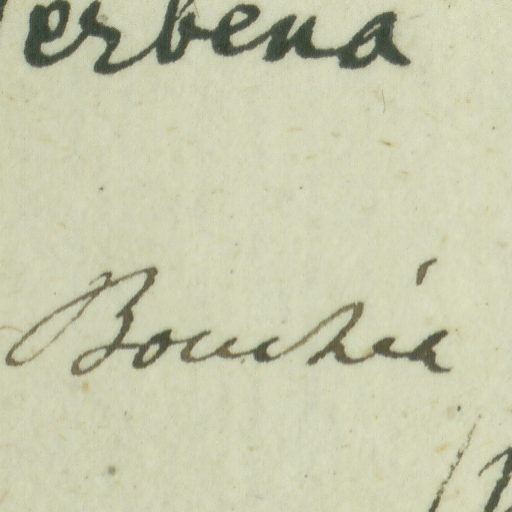 Verbena
Bouchia